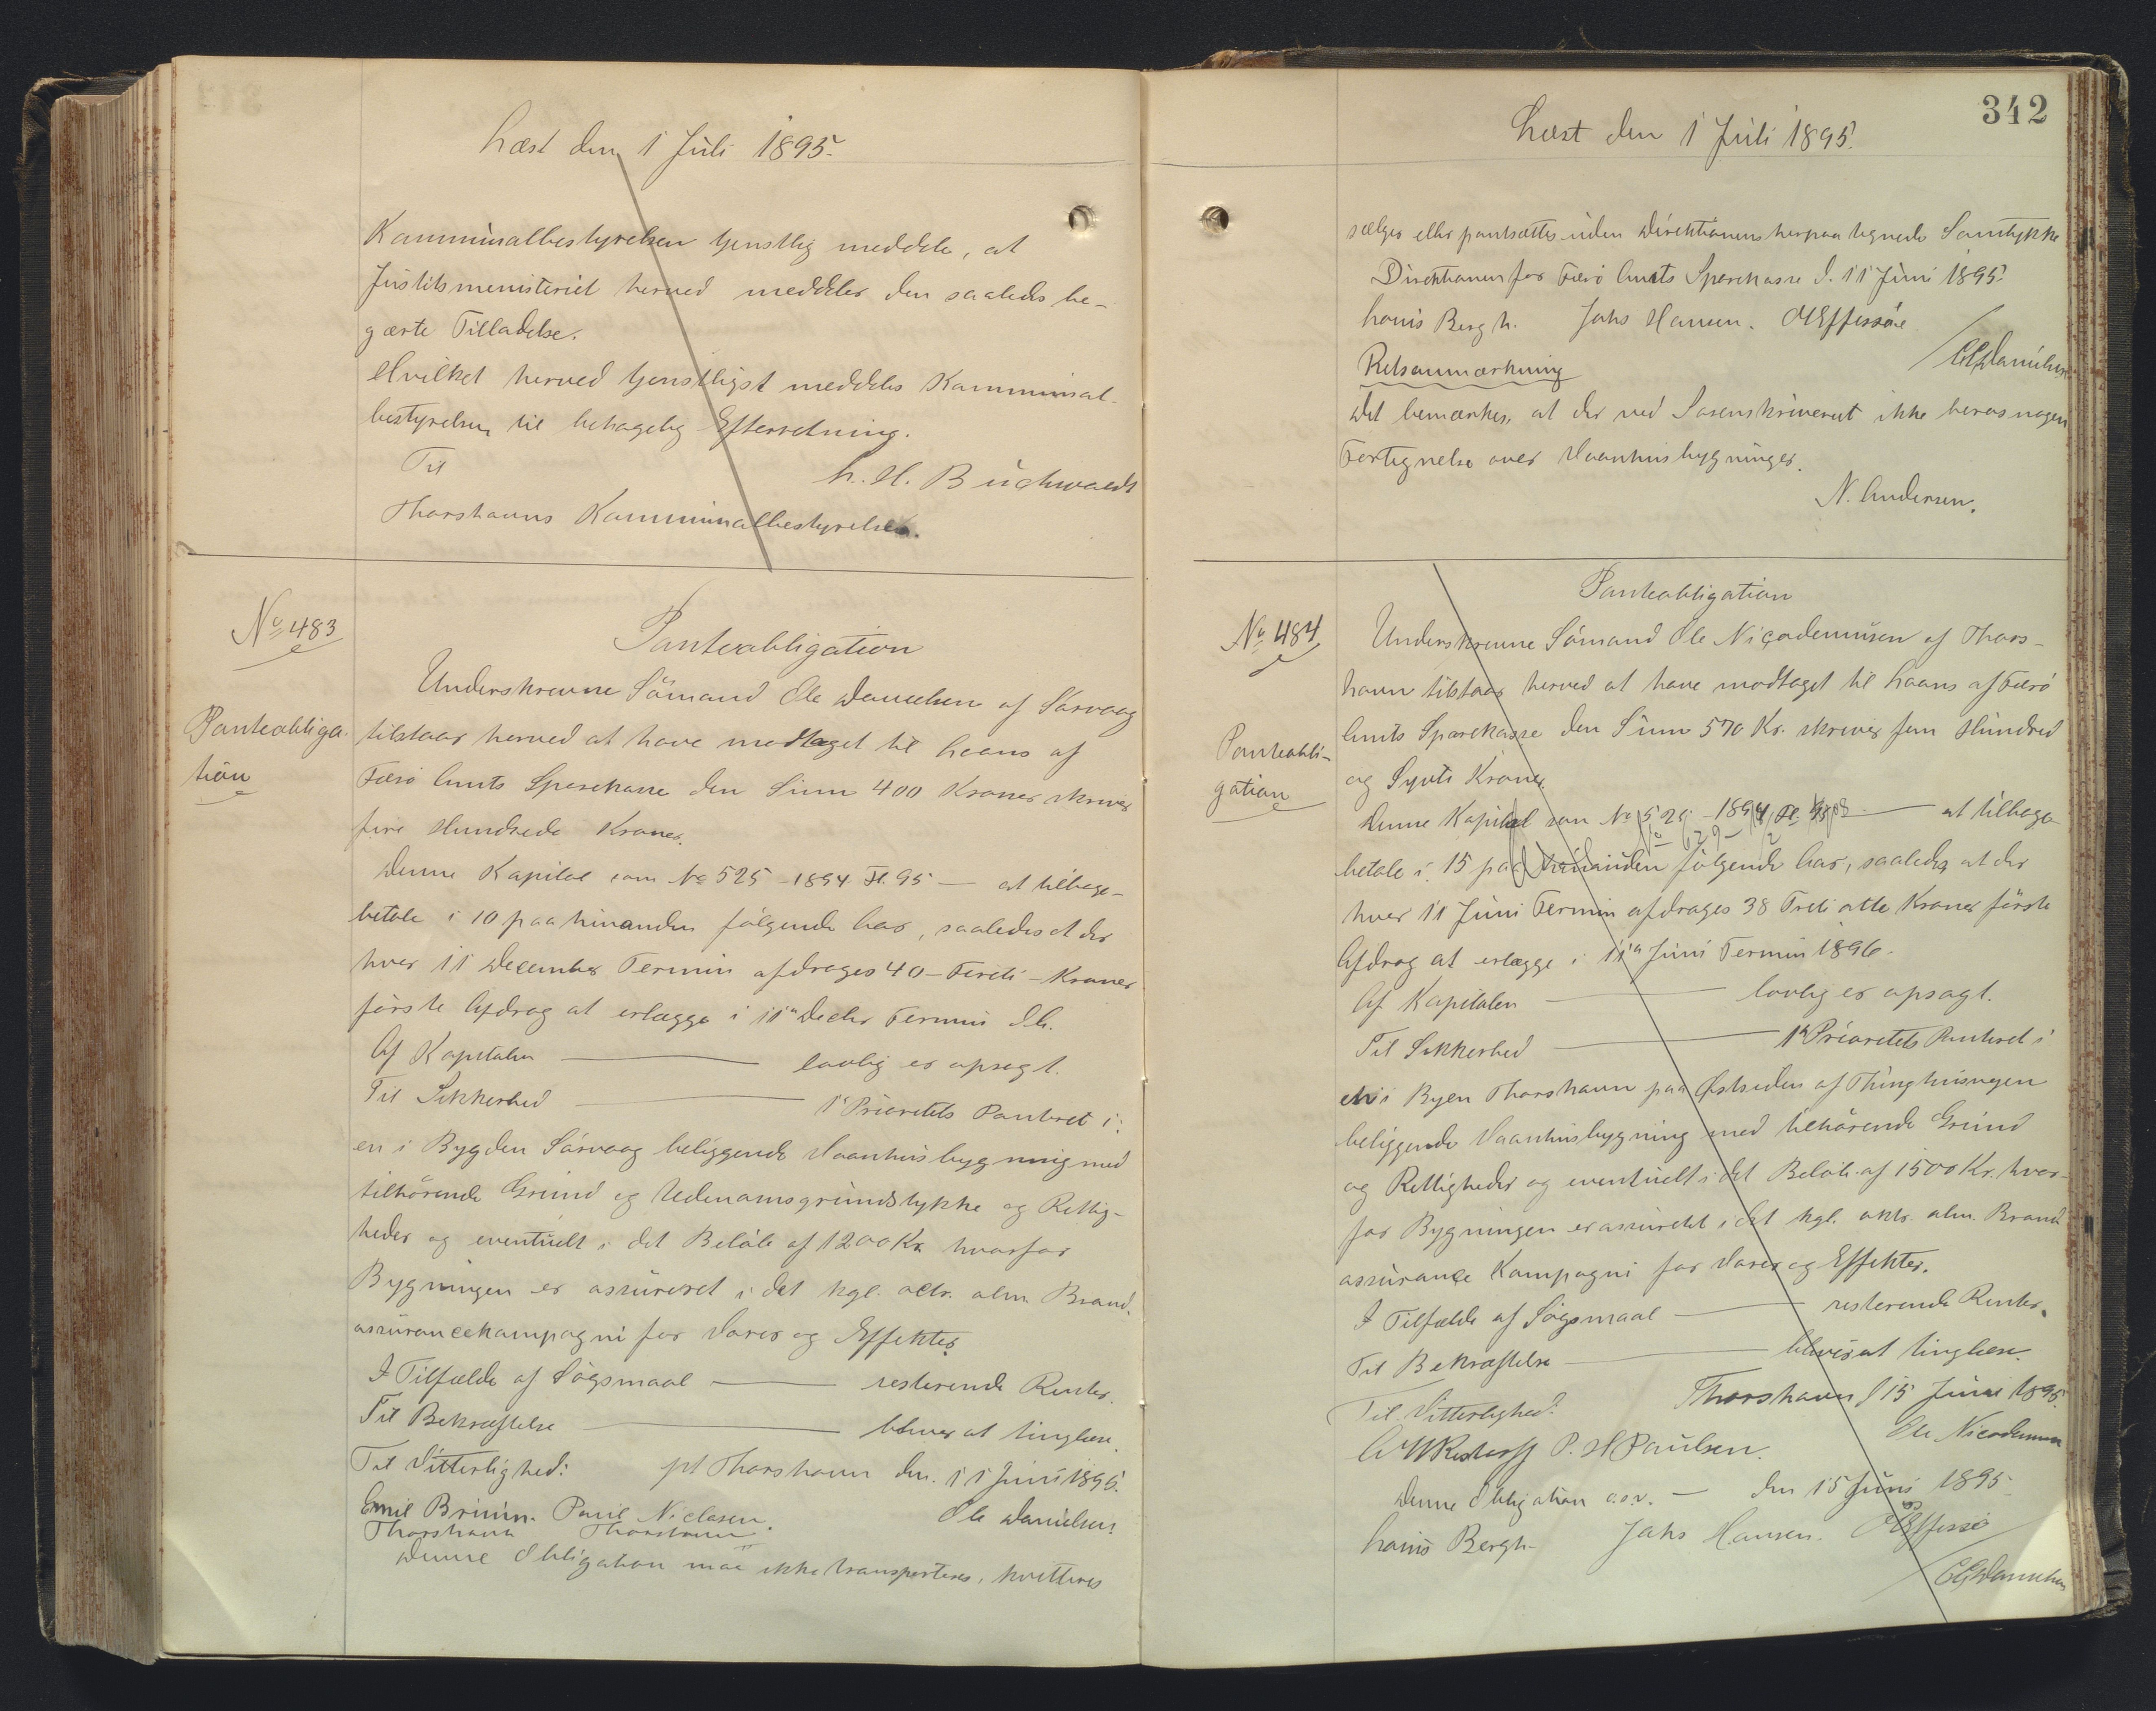 Læst den 1 Juli 1895.
Kommunalbestyrelsen tjenstlig meddele, at
Justitsministeriet herved meddeler den saaledes be-
gærte Tilladelse.
Hvilket herved tjenstligst meddeles Kommunal-
bestyrelsen til behagelig Efterretning.
Til
L. H. Buchwaldt
Thorshavns Kommunalbestyrelse.
No 483
Panteobliga-
tion
Panteobligation
Underskrevne Sömand Ole Danielsen af Sørvaag
tilstaar herved at have modtaget til Laans af
Færö Amts Sparekasse den Sum 400 Kroner skriver
fire Hundrede Kroner.
Denne Kapital som No 525 - 1894 Fl. 95 — at tilbage-
betale i 10 paa hinanden følgende Aar, saaledes at der
hver 11 December Termin afdrages 40 - Fireti - Kroner
første Afdrag at erlægge i 11te Decbr Termin d.A.
Af Kapitalen — lovlig er opsagt.
Til Sikkerhed — 1' Prioritets Panteret i:
en i Bygden Sørvaag beliggende Vaanhusbygning med
tilhörende Grund og Udenomsgrundstykke og Rettig-
heder og eventuelt i det Beløb af 1200 Kr. hvorfor
Bygningen er assureret i det kgl. octr. alm. Brand-
assurancekompagni for Varer og Effekter.
I Tilfælde af Søgsmaal — resterende Renter.
Til Bekræftelse — bliver at tinglæse.
Til Vitterlighed: pt Thorshavn den. 11 Juni 1895.
Emil Bruun. Poul Niclasen. Ole Danielsen
Thorshavn Thorshavn
Denne Obligation maa ikke transporteres, kvitteres
342
Læst den 1 Juli 1895.
sælges eller pantsættes uden Direktionens herpaa tegnede Samtykke
Direktionen for Færö Amts Sparekasse d. 11 Juni 1895.
Louis Bergh. Johs Hansen. O Effersöe
/ Danielsen
Retsanmærkning
Det bemærkes, at der ved Sorenskriveriet ikke beros nogen
Fortegnelse over Vaanhusbygninger.
N. Andersen.
No 484
Panteobli-
gation
Panteobligation
Underskrevne Sömand Ole Nicodemusen af Thors-
havn tilstaar herved at have modtaget til Laans af Færö
Amts Sparekasse den Sum 570 Kr. skriver fem Hundred
og Syvti Kroner.
Denne Kapital som No 525 - 1894 Fl. — at tilbage-
betale i 15 paa hinanden følgende Aar, saaledes at der
hver 11 Juni Termin afdrages 38 Treti otte Kroner første
Afdrag at erlægge i 11te Juni Termin 1896.
Af Kapitalen — lovlig er opsagt.
Til Sikkerhed — 1' Prioritets Panteret i
en i Byen Thorshavn paa Østsiden af Thinghusvegen
beliggende Vaanhusbygning med tilhörende Grund
og Rettigheder og eventuelt i det Beløb af 1500 Kr. hvor-
for Bygningen er assureret i det kgl. oktr. alm. Brand
assurance Kompagni for Varer og Effekter.
I Tilfælde af Søgsmaal — resterende Renter.
Til Bekræftelse — bliver at tinglæse.
Til Vitterlighed: Thorshavn d 15 Juni 1895.
Restorff P. H Poulsen. Ole Nicodemusen
Denne Obligation o.s.v. — den 15 Juni 1895.
Louis Bergh. Johs Hansen. O Effersöe
/ Danielsen